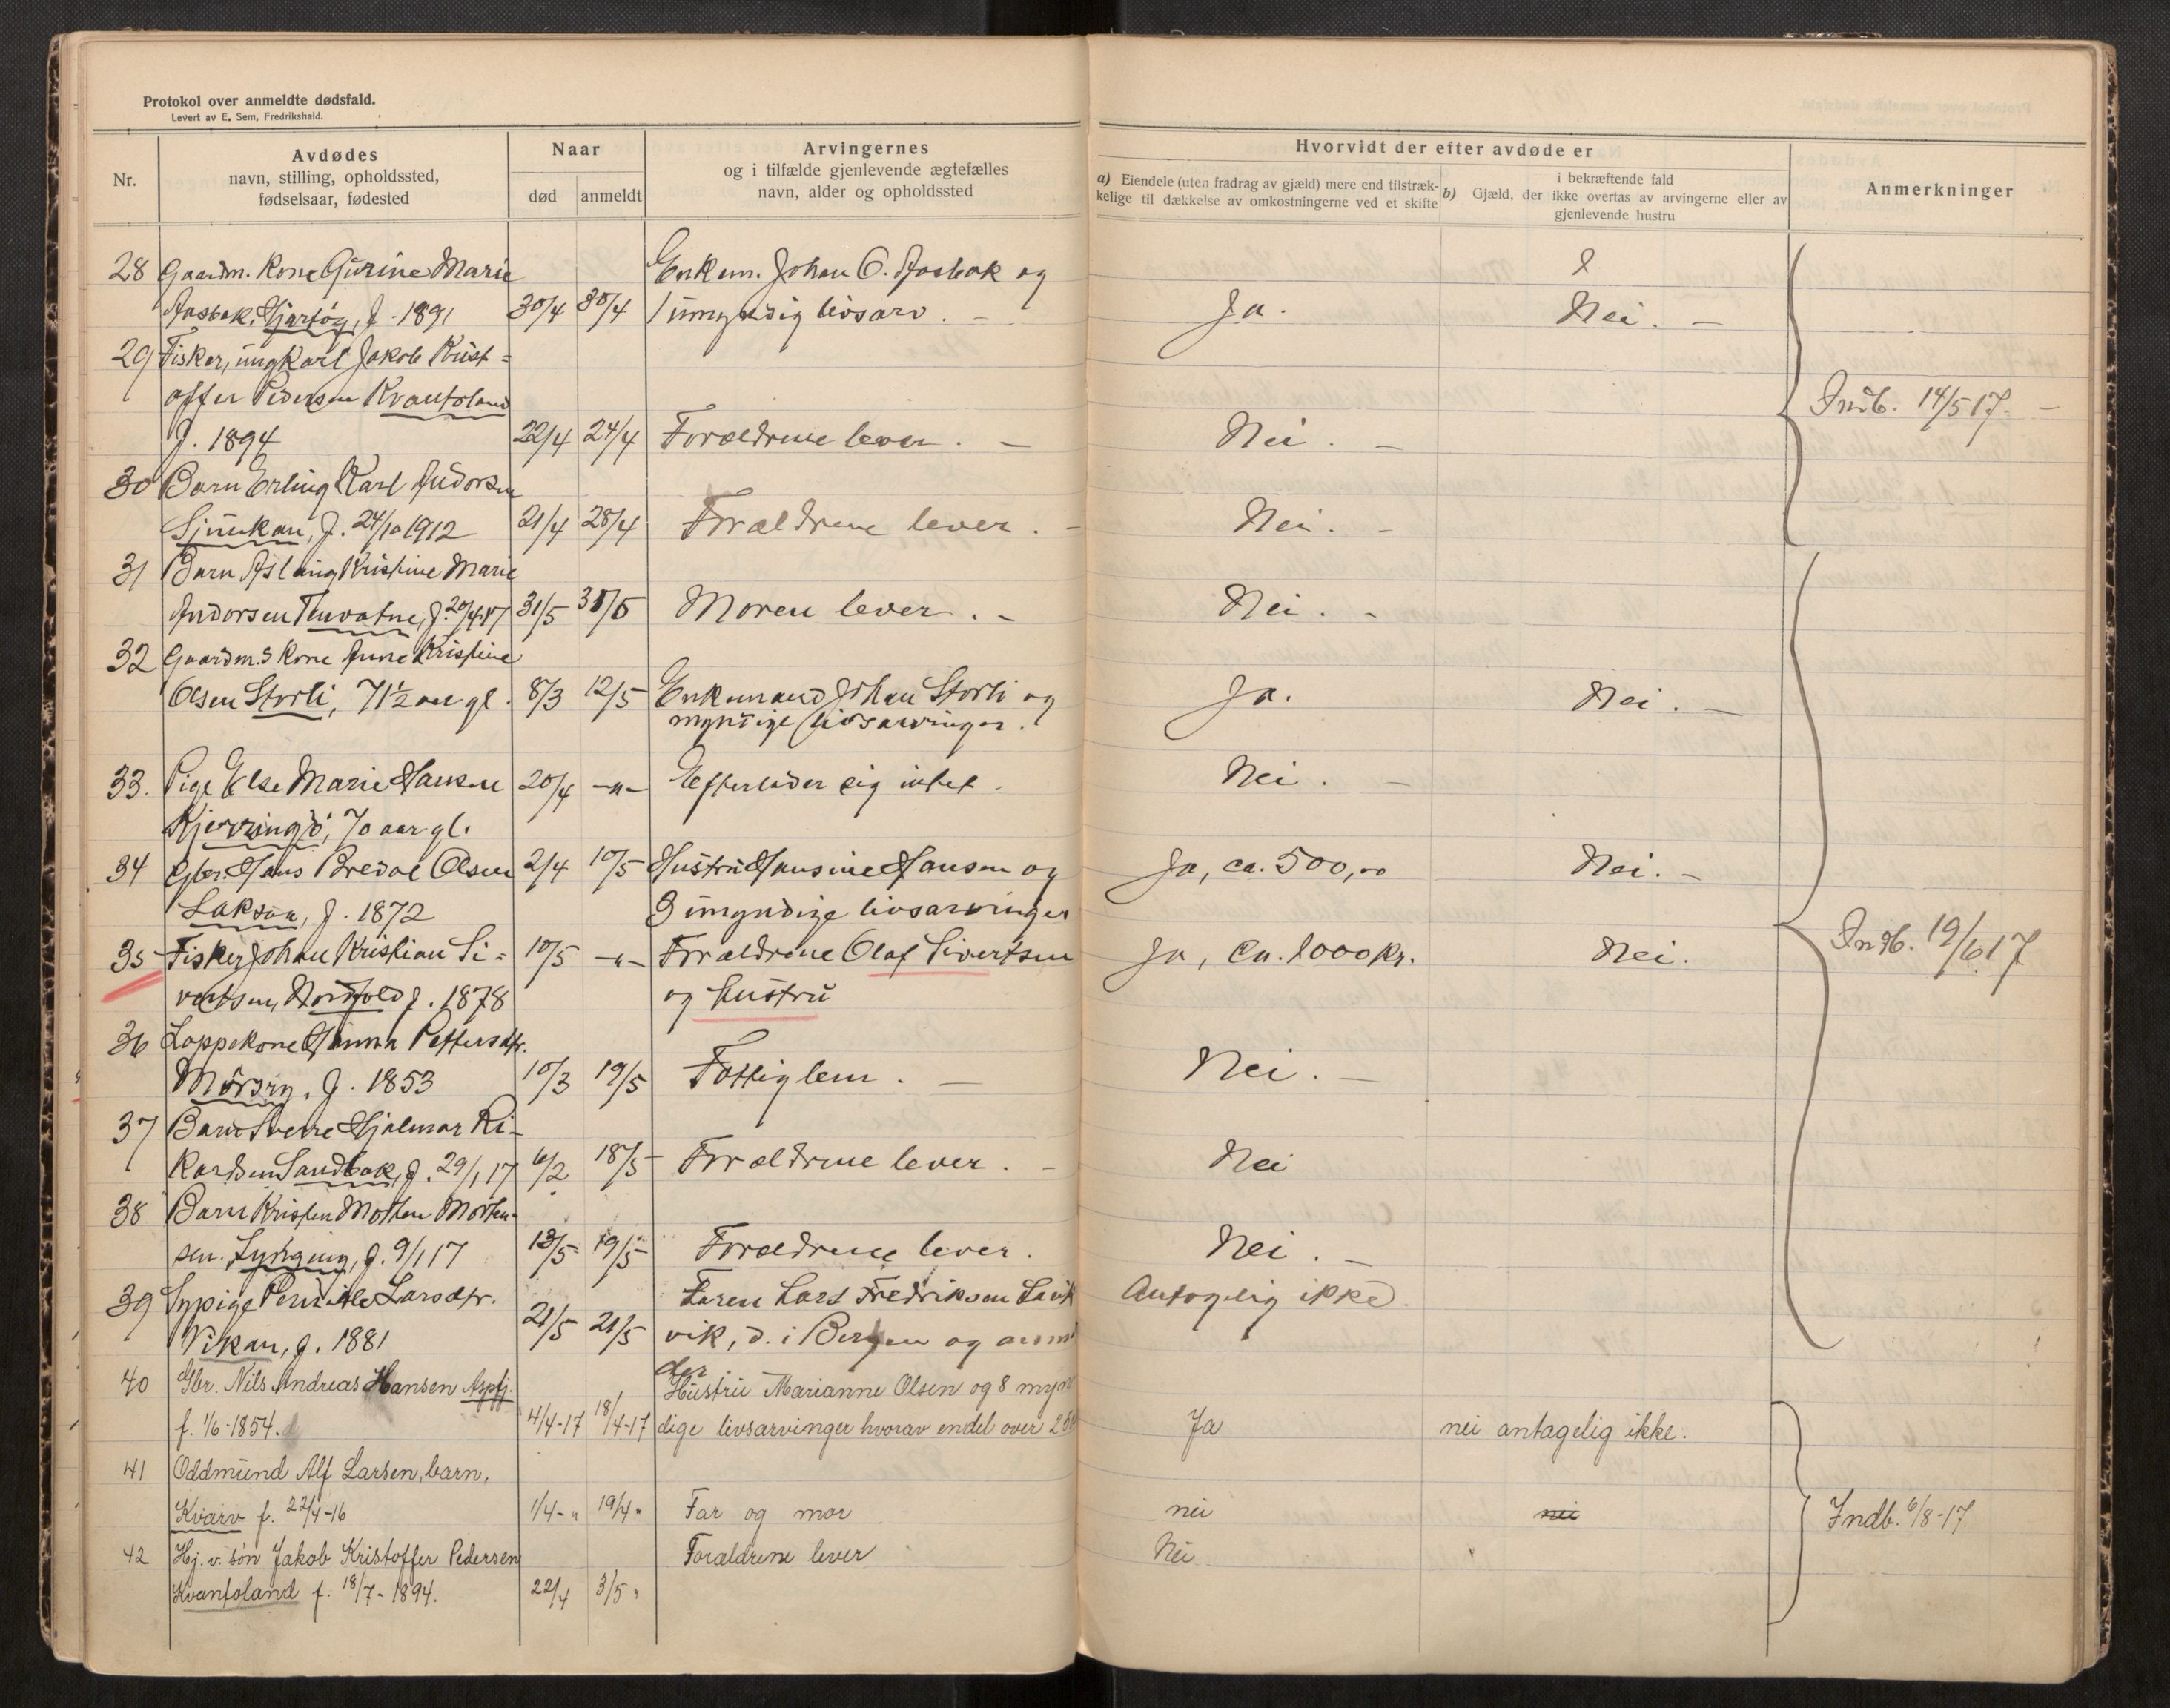 Protokol over anmeldte dødsfald.
Levert av E. Sem, Fredrikshald.
Nr.
Avdødes
navn, stilling, opholdssted,
fødselsaar, fødested
Naar
død anmeldt
Arvingernes
og i tilfælde gjenlevende ægtefælles
navn, alder og opholdssted
Hvorvidt der efter avdøde er
a) Eiendele (uten fradrag av gjæld) mere end tilstræk-
kelige til dækkelse av omkostningerne ved et skifte
b) Gjæld, der i bekræftende fald
ikke overtas av arvingerne eller av
gjenlevende hustru
Anmerkninger
28 Gaardm. Kone Gurine Marie Enkem. Johan O. Aasbak og
Aasbak, f. 1891 30/4 30/4 1 umyndig livsarv. - Ja. Nei. -
29 Fisker, ungkarl Jakob Krist=
offer Pedersen Kvantoland Indb. 14/5 17. -
f. 1894 22/4 24/4 Forældrene lever. - Nei. -
30 Barn Erling Karl Andorsen
f. 24/10 1912 21/4 28/4 Forældrene lever. - Nei. -
31 Barn Aslaug Kristine Marie
Andorsen Tennvatne, f. 20/4 17 31/5 Moren lever. - Nei. -
32 Gaardm.s Kone Anne Kristine
Olsen Storli, 71½ aar gl. 8/3 12/5 Enkemand Johan Storli og Ja. Nei. -
myndige livsarvinger.
33. Pige Else Marie Hansen 20/4 -"- Efterlader sig intet. Nei. -
Kjerringö, 70 aar gl.
34 Gbr. Hans Bredal Olsen 2/4 10/5 Hustru Hansine Hansen og Ja, ca. 500,00 Nei. -
Laksaa, f. 1872 3 umyndige livsarvinger
35 Fisker Johan Kristian Si= 10/5 -"- Forældrene Olaf Sivertsen Ja, ca. 1000 kr. Nei. Indb. 19/6 17
vertsen, Nordfold f. 1878 og hustru
36 Lappekone Anna Pettersdtr.
Mørsry, f. 1853 10/3 19/5 Fattiglem. - Nei. -
37 Barn Sverre Hjalmar Ri-
kardsen Sandbak, f. 29/1 17 6/2 18/5 Forældrene lever. - Nei
38 Barn Kristen Morten-
sen. f. 9/1 17 13/5 19/5 Forældrene lever. Nei. -
39 Sypige Pernille Larsdtr. Faren Lars Fredriksen Antagelig ikke.
Vikan, f. 1881 21/5 21/5 vik, d. i Bergen og
40 Gbr. Nils Andreas Hansen Aspfj. Hustru Marianne Olsen og 8 myn
f. 1/6-1854. 4/4-17 18/4-17 dige livsarvinger hvorav endel over 25 Ja nei antagelig ikke.
41 Oddmund Alf Larsen, barn,
Kvarv f. 22/4-16 1/4-" 19/4 " Far og mor nei nei Indb. 6/8-17.
42 Hj. v. søn Jakob Kristoffer Pedersen Forældrene lever Nei
Kvantoland f. 18/7-1894. 22/4 3/5 "